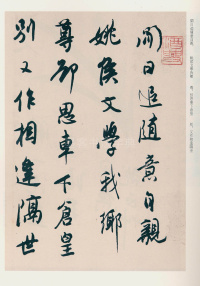 間日追隨意自親
姚侯文學我鄉
尊卻思車下倉皇
別又作相逢隔世